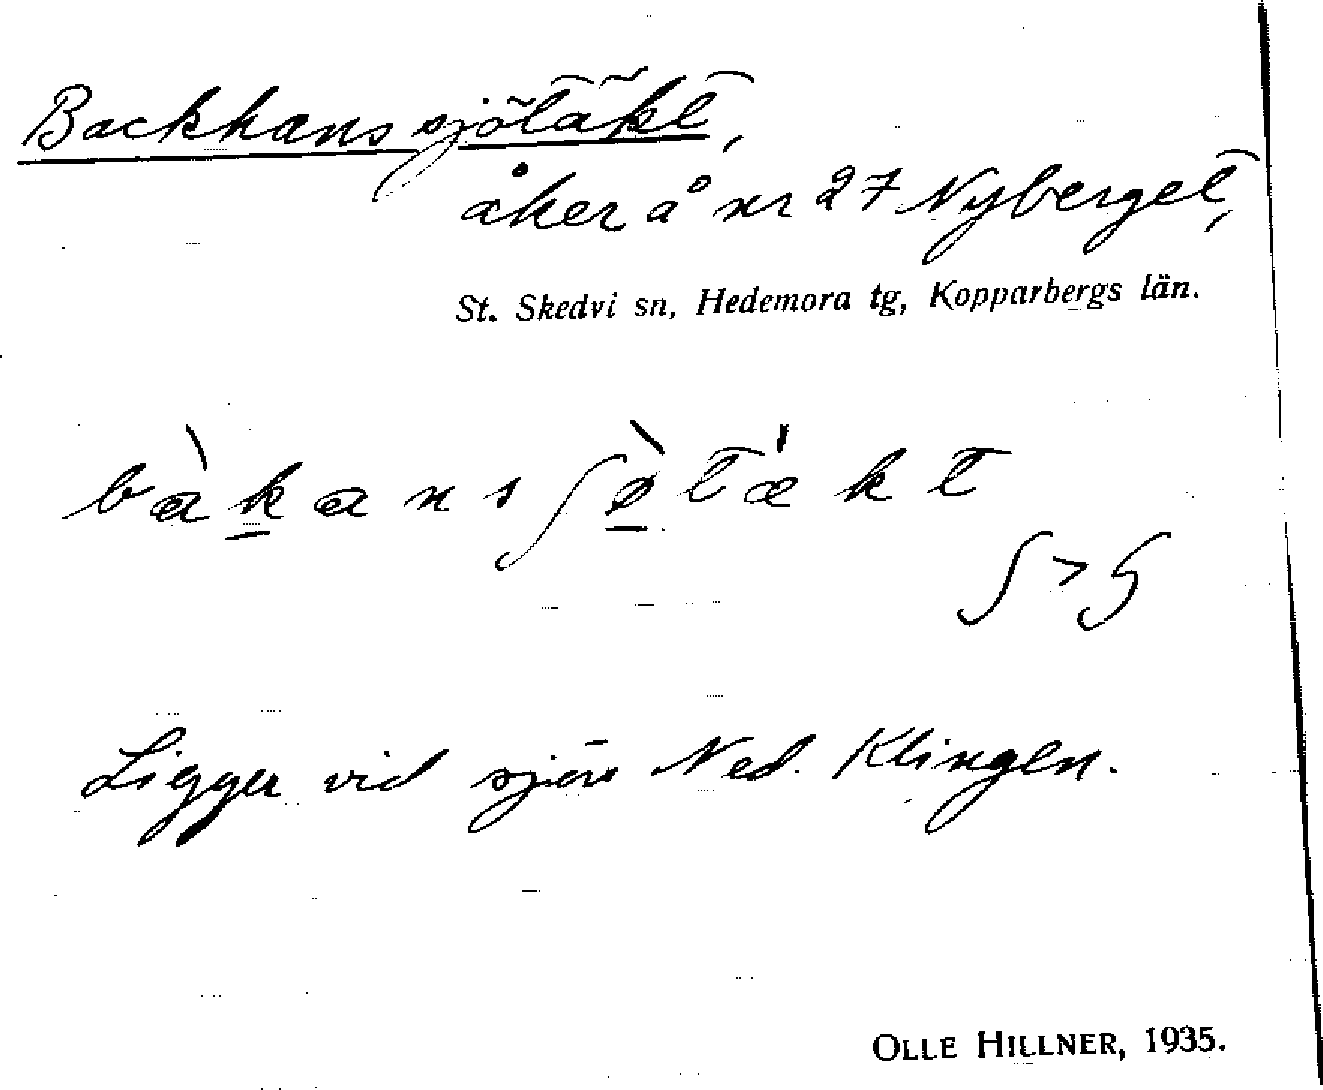 Backhans sjötäkt,
åker å nr 27 Nyberget,
St. Skedvi sn, Hedemora tg, Kopparbergs län.
bàkans ʃø̀tækt
ʃ > ʂ
Ligger vid sjön Ned. Klingen.
OLLE HILLNER, 1935.